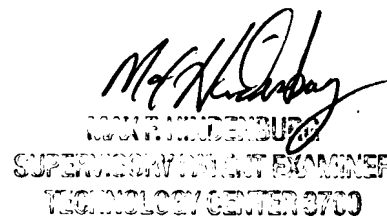 MAX F. HINDENBURG
SUPERVISORY PATENT EXAMINER
TECHNOLOGY CENTER 3700